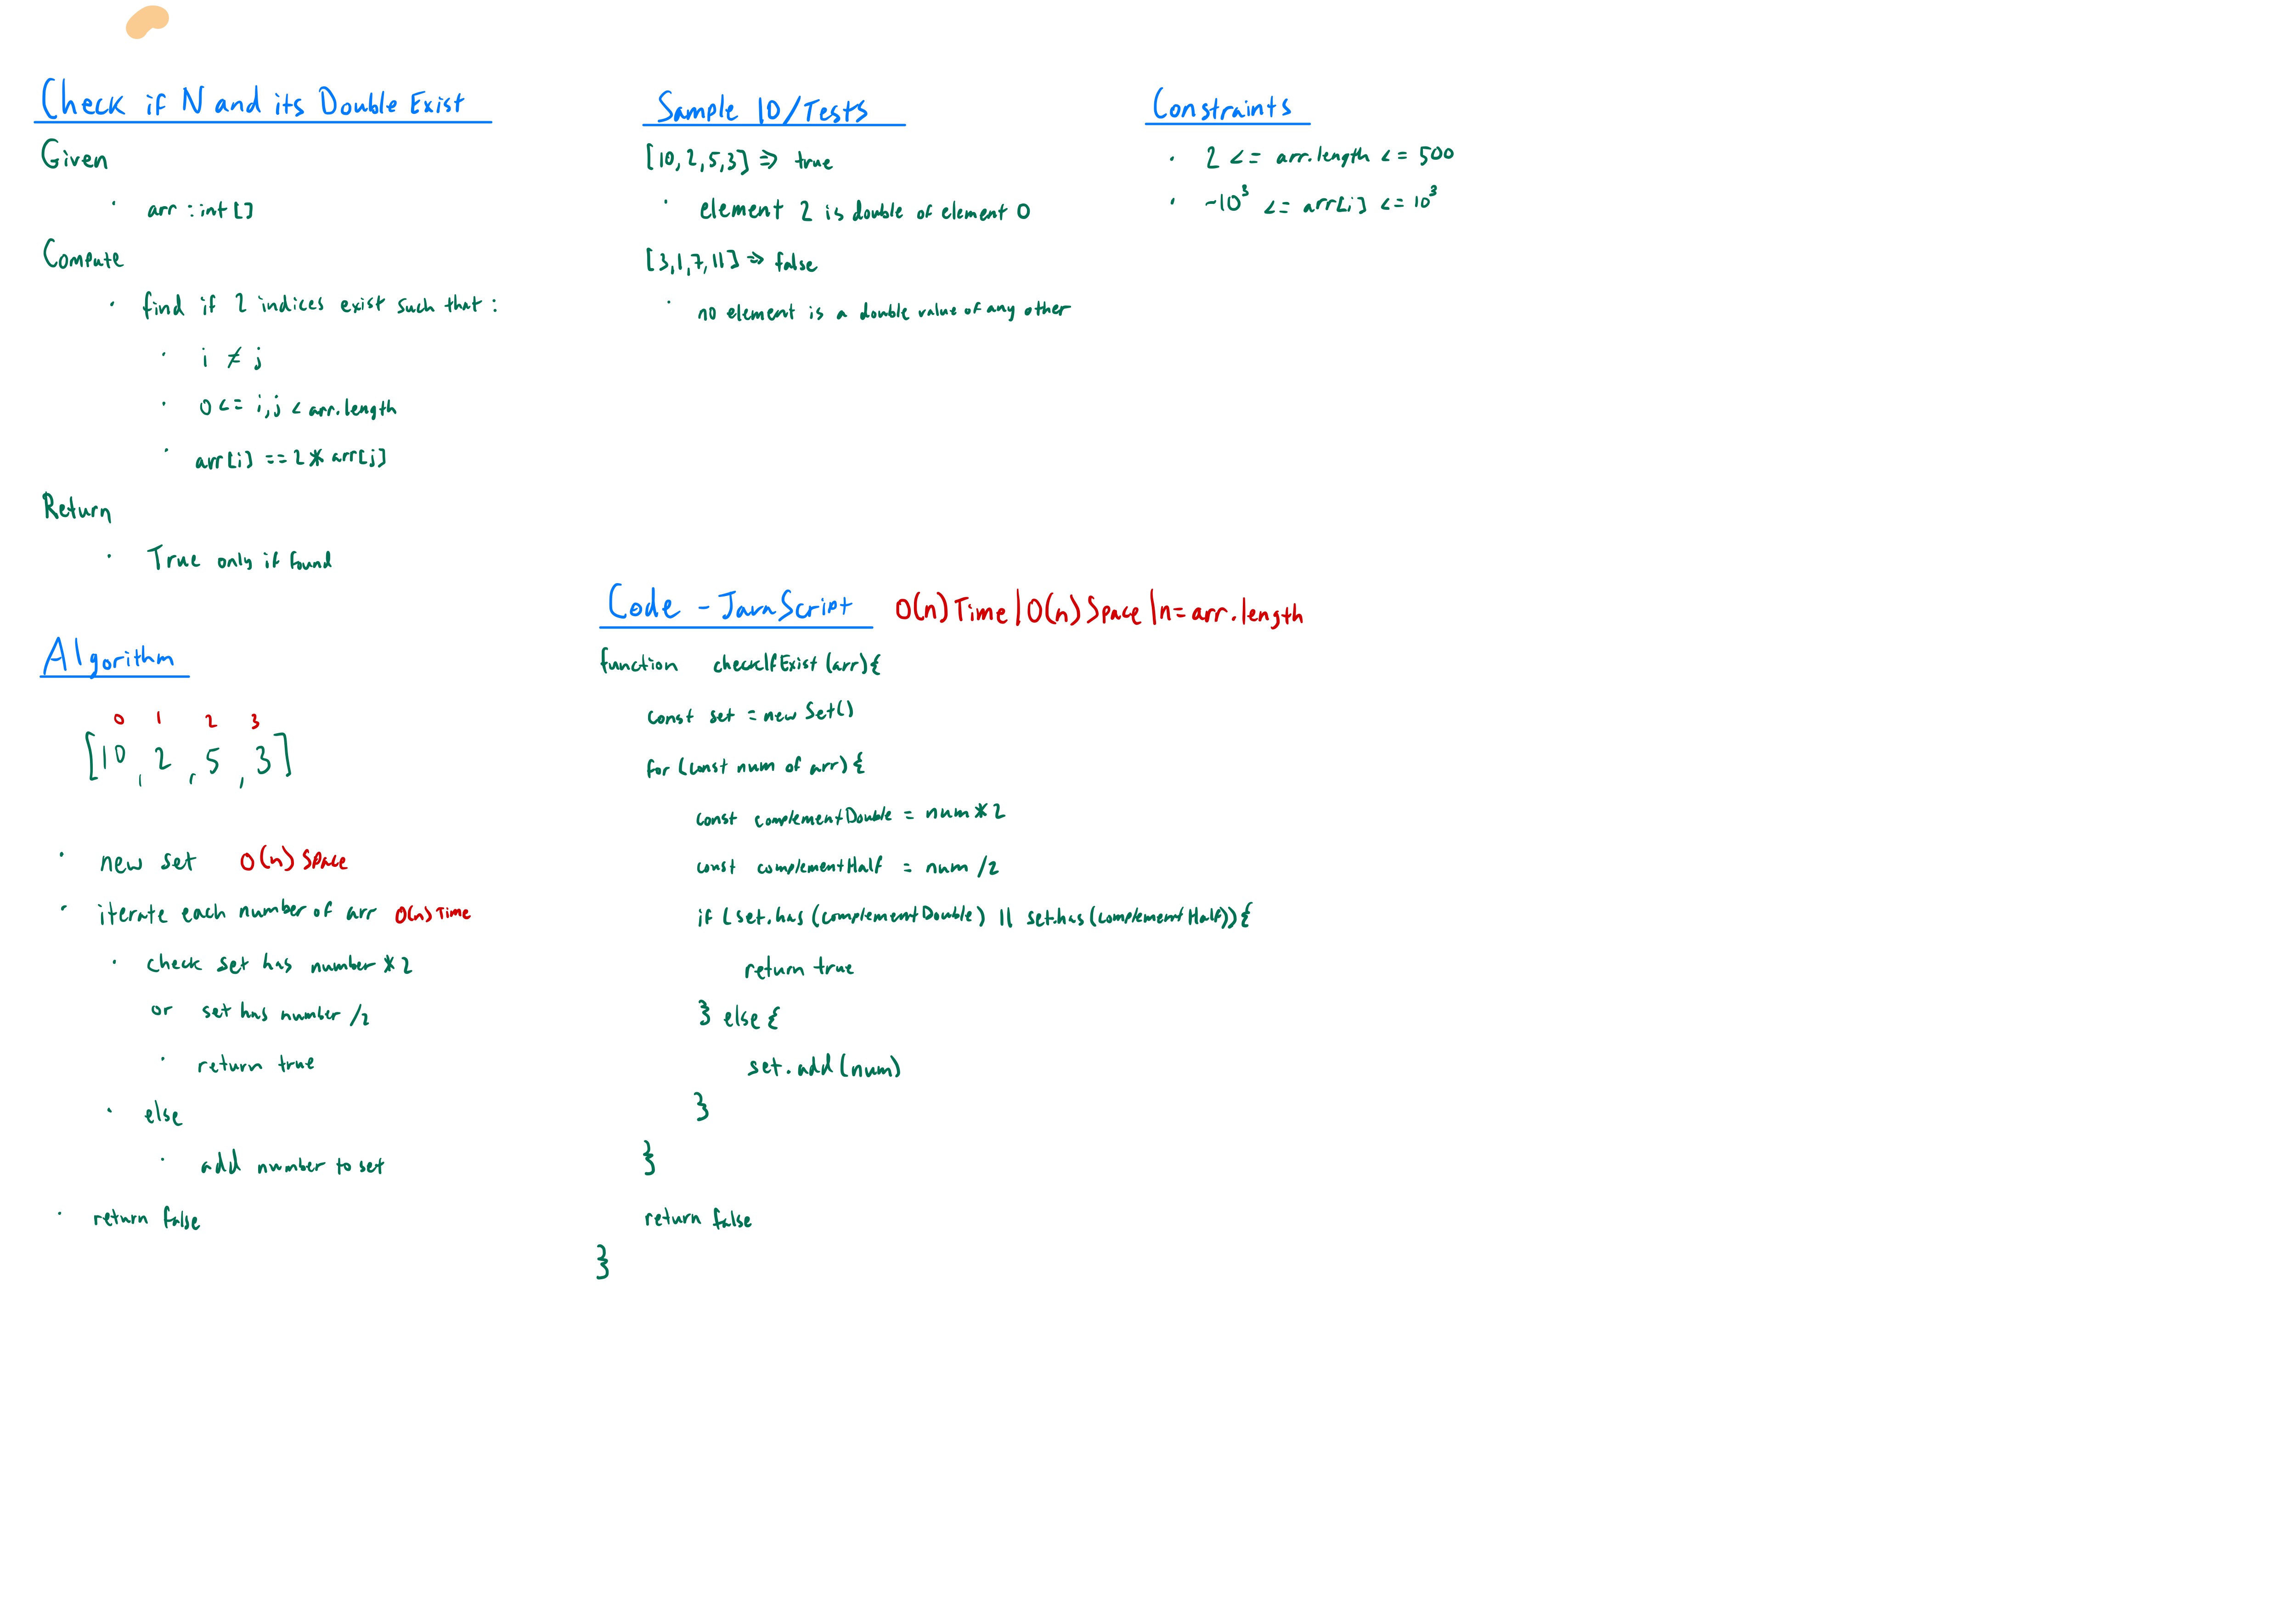 Check if N and its Double Exist
Given
· arr : int []
Compute
· find if 2 indices exist such that :
· i ≠ j
· 0 <= i,j < arr.length
· arr[i] == 2 * arr[j]
Return
· True only if found
Sample IO/Tests
[10, 2, 5, 3] => true
· element 2 is double of element 0
[3, 1, 7, 11] => false
· no element is a double value of any other
Constraints
· 2 <= arr.length <= 500
· ~10³ <= arr[i] <= 10³
Algorithm
0 1 2 3
[10, 2, 5, 3]
· new set O(n) Space
· iterate each number of arr O(n) Time
· check set has number * 2
or set has number /2
· return true
· else
· add number to set
· return false
Code - JavaScript O(n) Time | O(n) Space | n = arr.length
function checkIfExist (arr) {
const set = new Set()
for (const num of arr) {
const complementDouble = num * 2
const complementHalf = num /2
if (set.has (complementDouble) || set.has (complementHalf)) {
return true
} else {
set.add (num)
}
}
return false
}